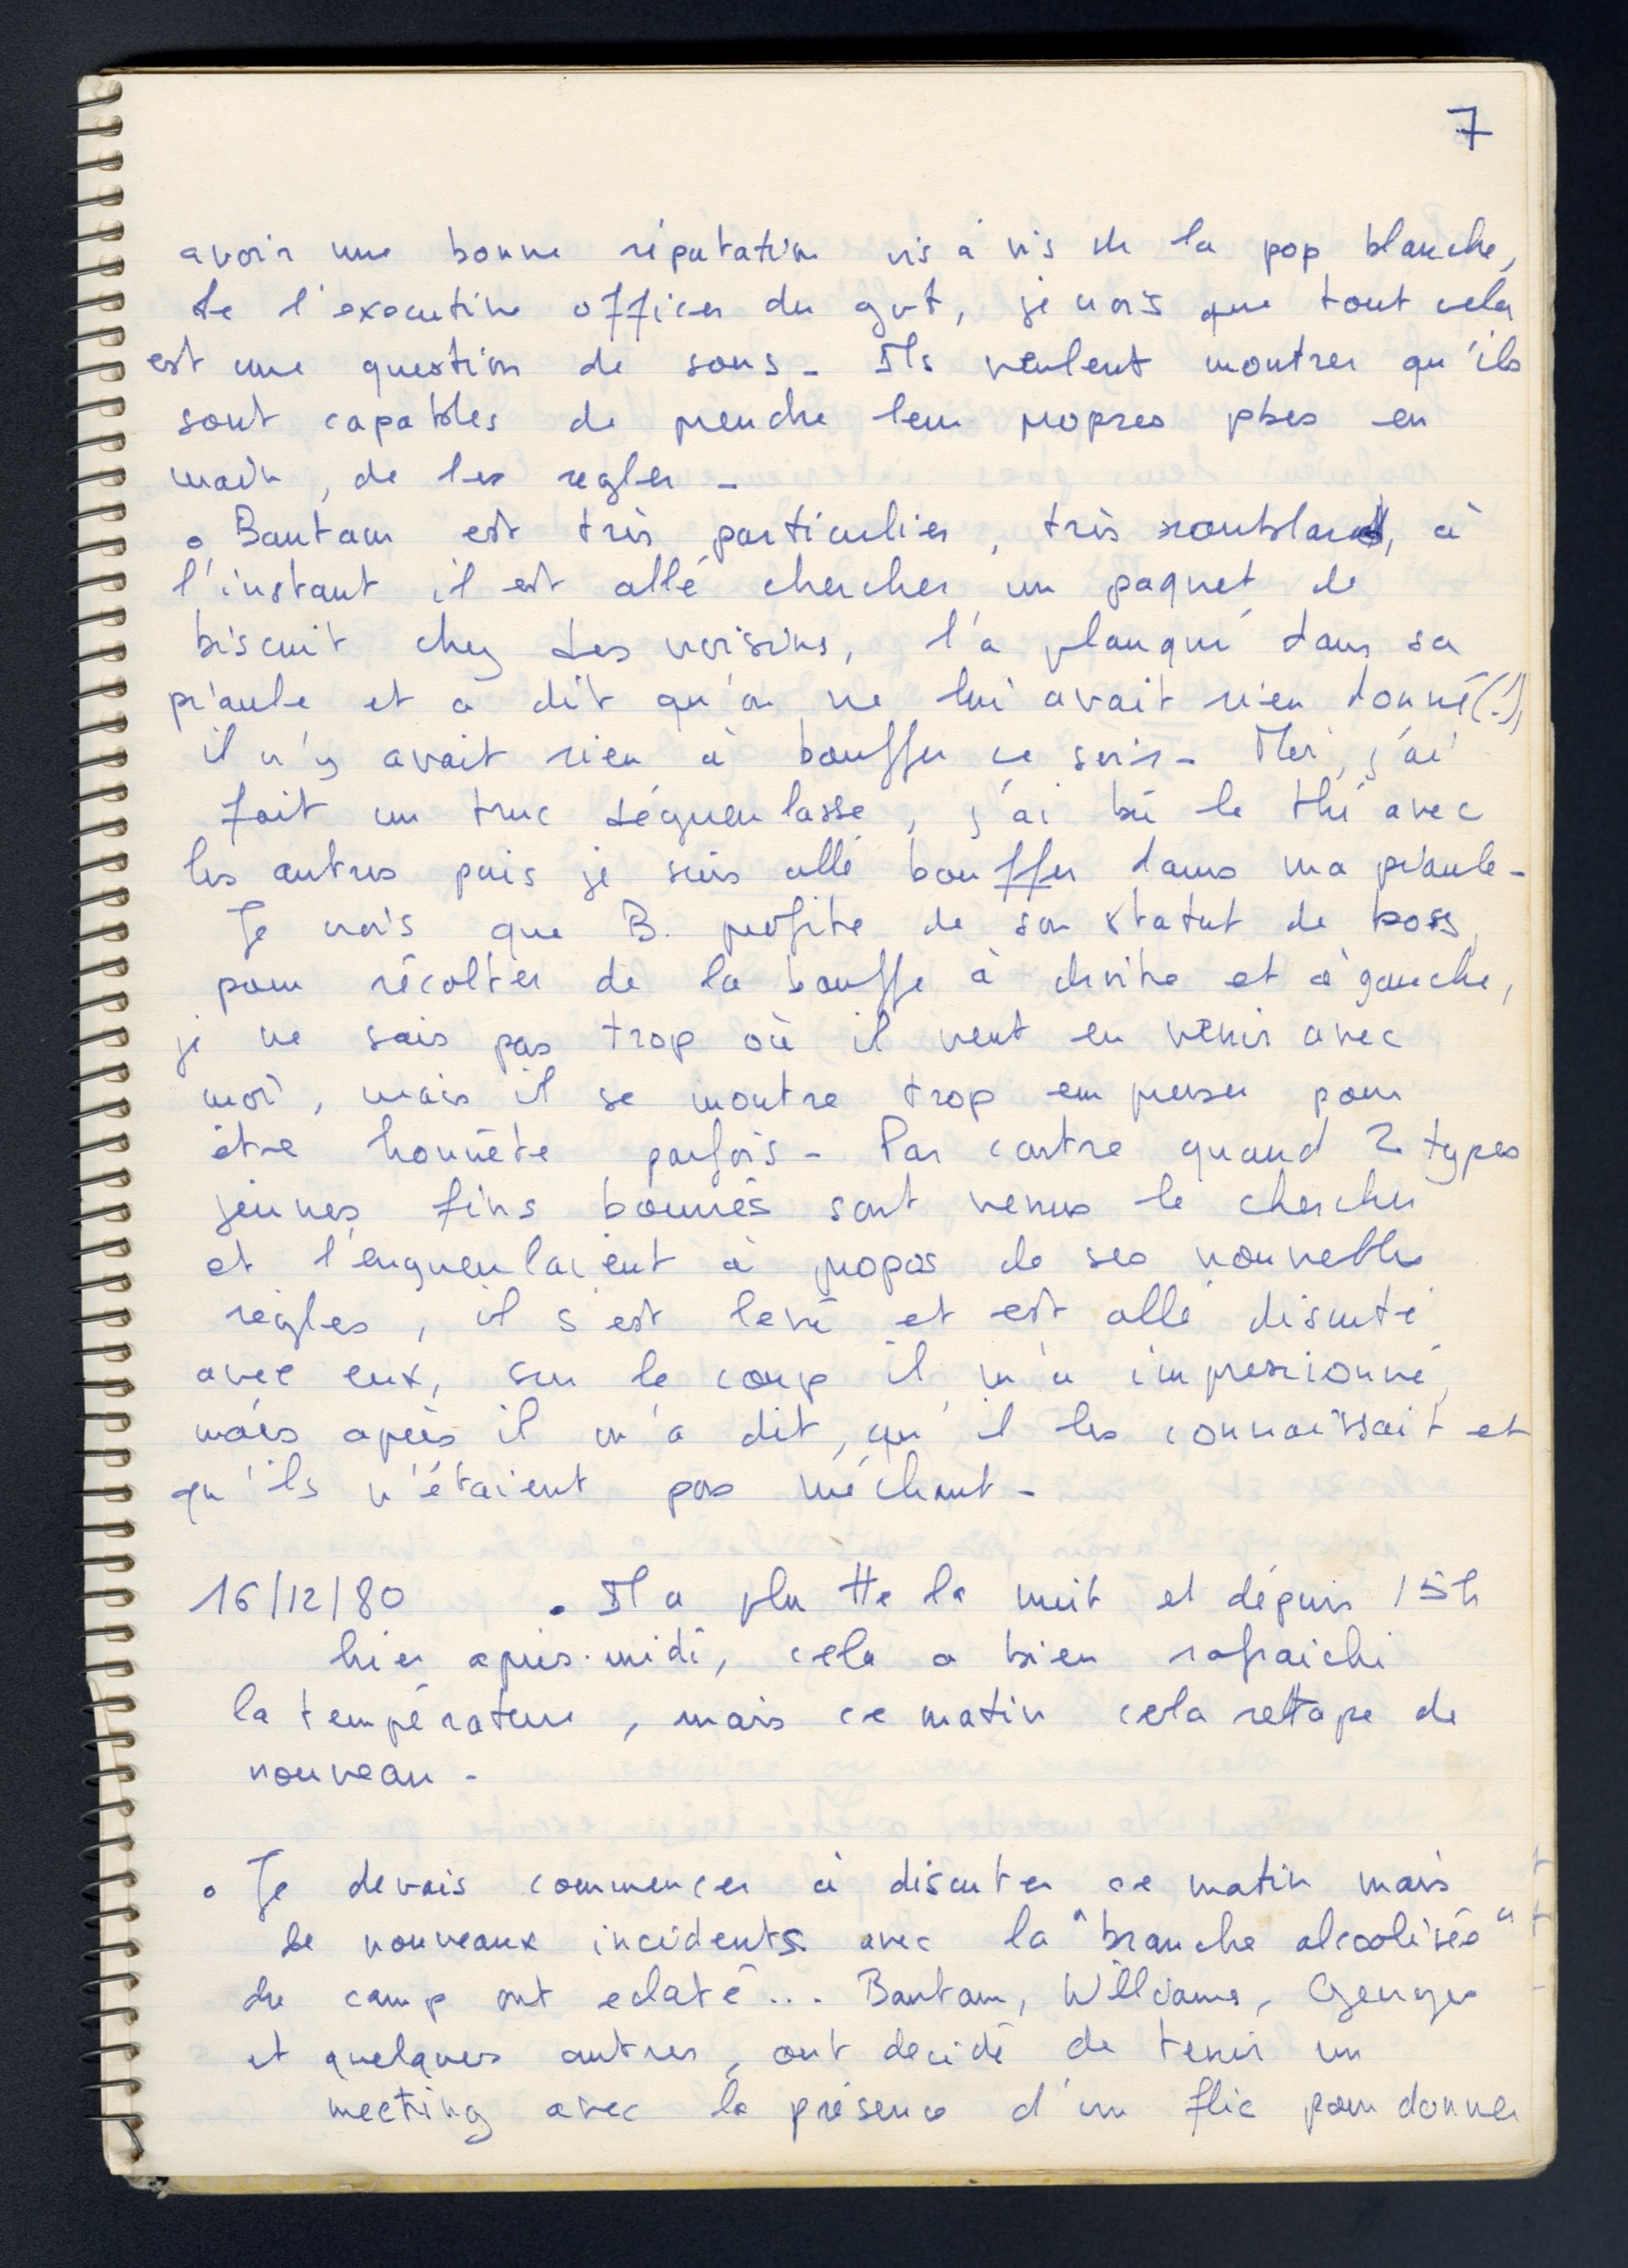 7
avoir une bonne réputation vis à vis de la pop blanche,
de l'executive officer du gvt, je crois que tout cela
est une question de sous - Ils veulent montrer qu'ils
sont capables de prendre leur propres pbes en
main, de les regler -
• Bantam est très particulier, très roublard, à
l'instant il est allé chercher un paquet de
biscuit chez des voisins, l'a planqué dans sa
piaule et a dit qu'on ne lui avait rien donné (!),
il n'y avait rien à bouffer ce soir - Moi, j'ai
fait un truc dégueulasse, j'ai bu le thé avec
les autres puis je suis allé bouffer dans ma piaule -
Je crois que B. profite de son statut de boss
pour récolter de la bouffe à droite et à gauche,
je ne sais pas trop où il veut en venir avec
moi, mais il se montre trop empressé pour
être honnête parfois - Par contre quand 2 types
jeunes fins bourrés sont venus le chercher
et l'engueulaient à propos de ses nouvelles
règles, il s'est levé et est allé discuté
avec eux, sur le coup il m'a impressionné,
mais après il m'a dit, qu'il les connaissait et
qu'ils n'étaient pas méchant -
16/12/80 • Il a plu tte la nuit et dépuis 15h
hier après-midi, cela a bien rafraichi
la température, mais ce matin cela retape de
nouveau -
• Je devais commencer à discuter ce matin mais
de nouveaux incidents avec la "branche alcoolisée"
du camp ont eclaté... Bantam, Williams, Georges
et quelques autres, ont decidé de tenir un
meeting avec la présence d'un flic pour donner